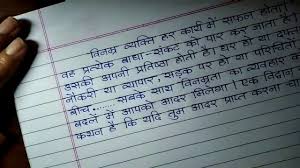 विनम्र व्यक्ति हर कार्य में सफल होता।
वह प्रत्येक बाधा-संकट को पार कर जाता है।
उसकी अपनी प्रतिष्ठा होती है। घर हो या दफ्तर
नौकरी या व्यापार, सड़क पर हो या परिचितों
बीच....... सबके साथ विनम्रता का व्यवहार क
बदले में आपको आदर मिलेगा। एक विद्वान
कथन है कि यदि तुम आदर प्राप्त करना चा